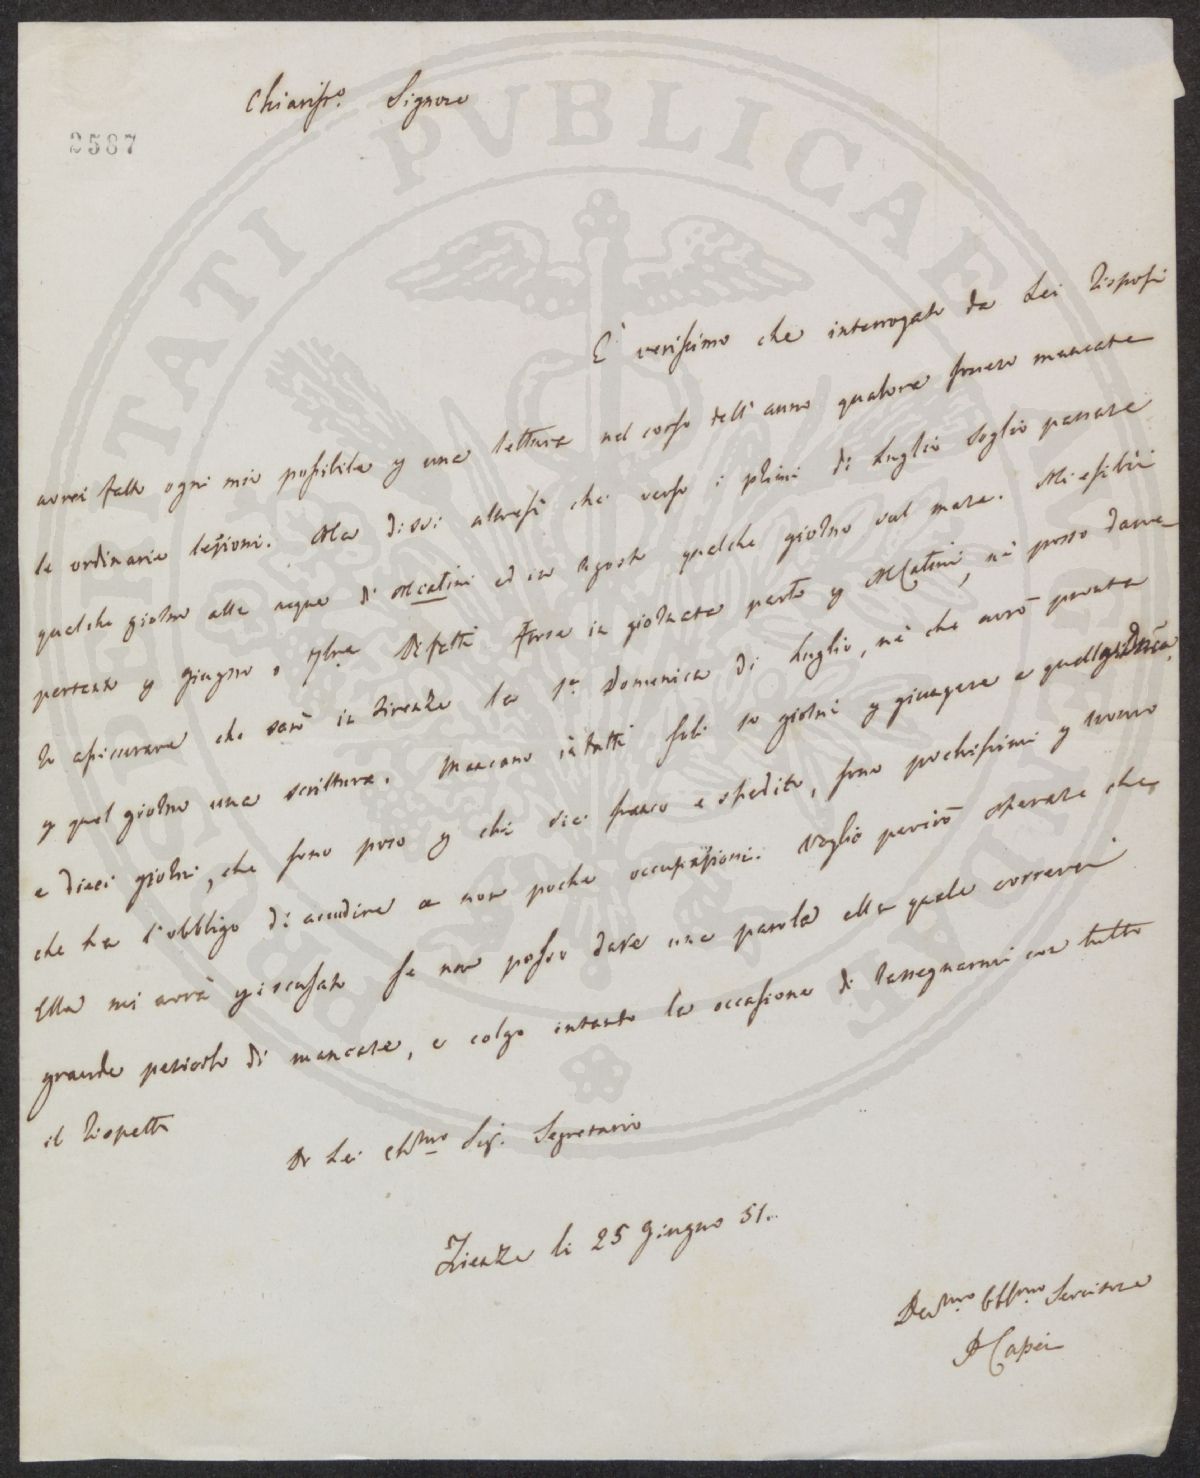 Chiariss.o Signore
2587
È verissimo che interrogato da Lei risposi
avrei fatto ogni mio possibile p una lettura nel corso dell'anno qualora fossero mancate
le ordinarie lezioni. Ma dissi altresì che verso i primi di Luglio soglio passare
qualche giorno alle acque di Mcatini ed in Agosto qualche giorno sul mare. Mi esibii
pertanto p Giugno o 7bre Difatti forse in giornata parto p MCatini, nè posso darve
lo assicurare che sarò in Firenze la 1a Domenica di Luglio, nè che avrò pronta
p quel giorno una scrittura. Mancano infatti soli 10 giorni p giungere a quell
e dieci giorni, che sono poco p chi sia franco e spedito, sono pochissimi p uomo
che ha l'obbligo di accudire a non poche occupazioni. Voglio perciò sperare che
Ella mi avrà p iscusato se non posso dare una parola alla quale correrei
grande pericolo di mancare, e colgo intanto la occasione di rassegnarmi con tutto
il rispetto
Di Lei Ch.mo Sig. Segretario
Firenze li 25 Giugno 51.
Dev.mo Obb.mo Servitore
P Capei